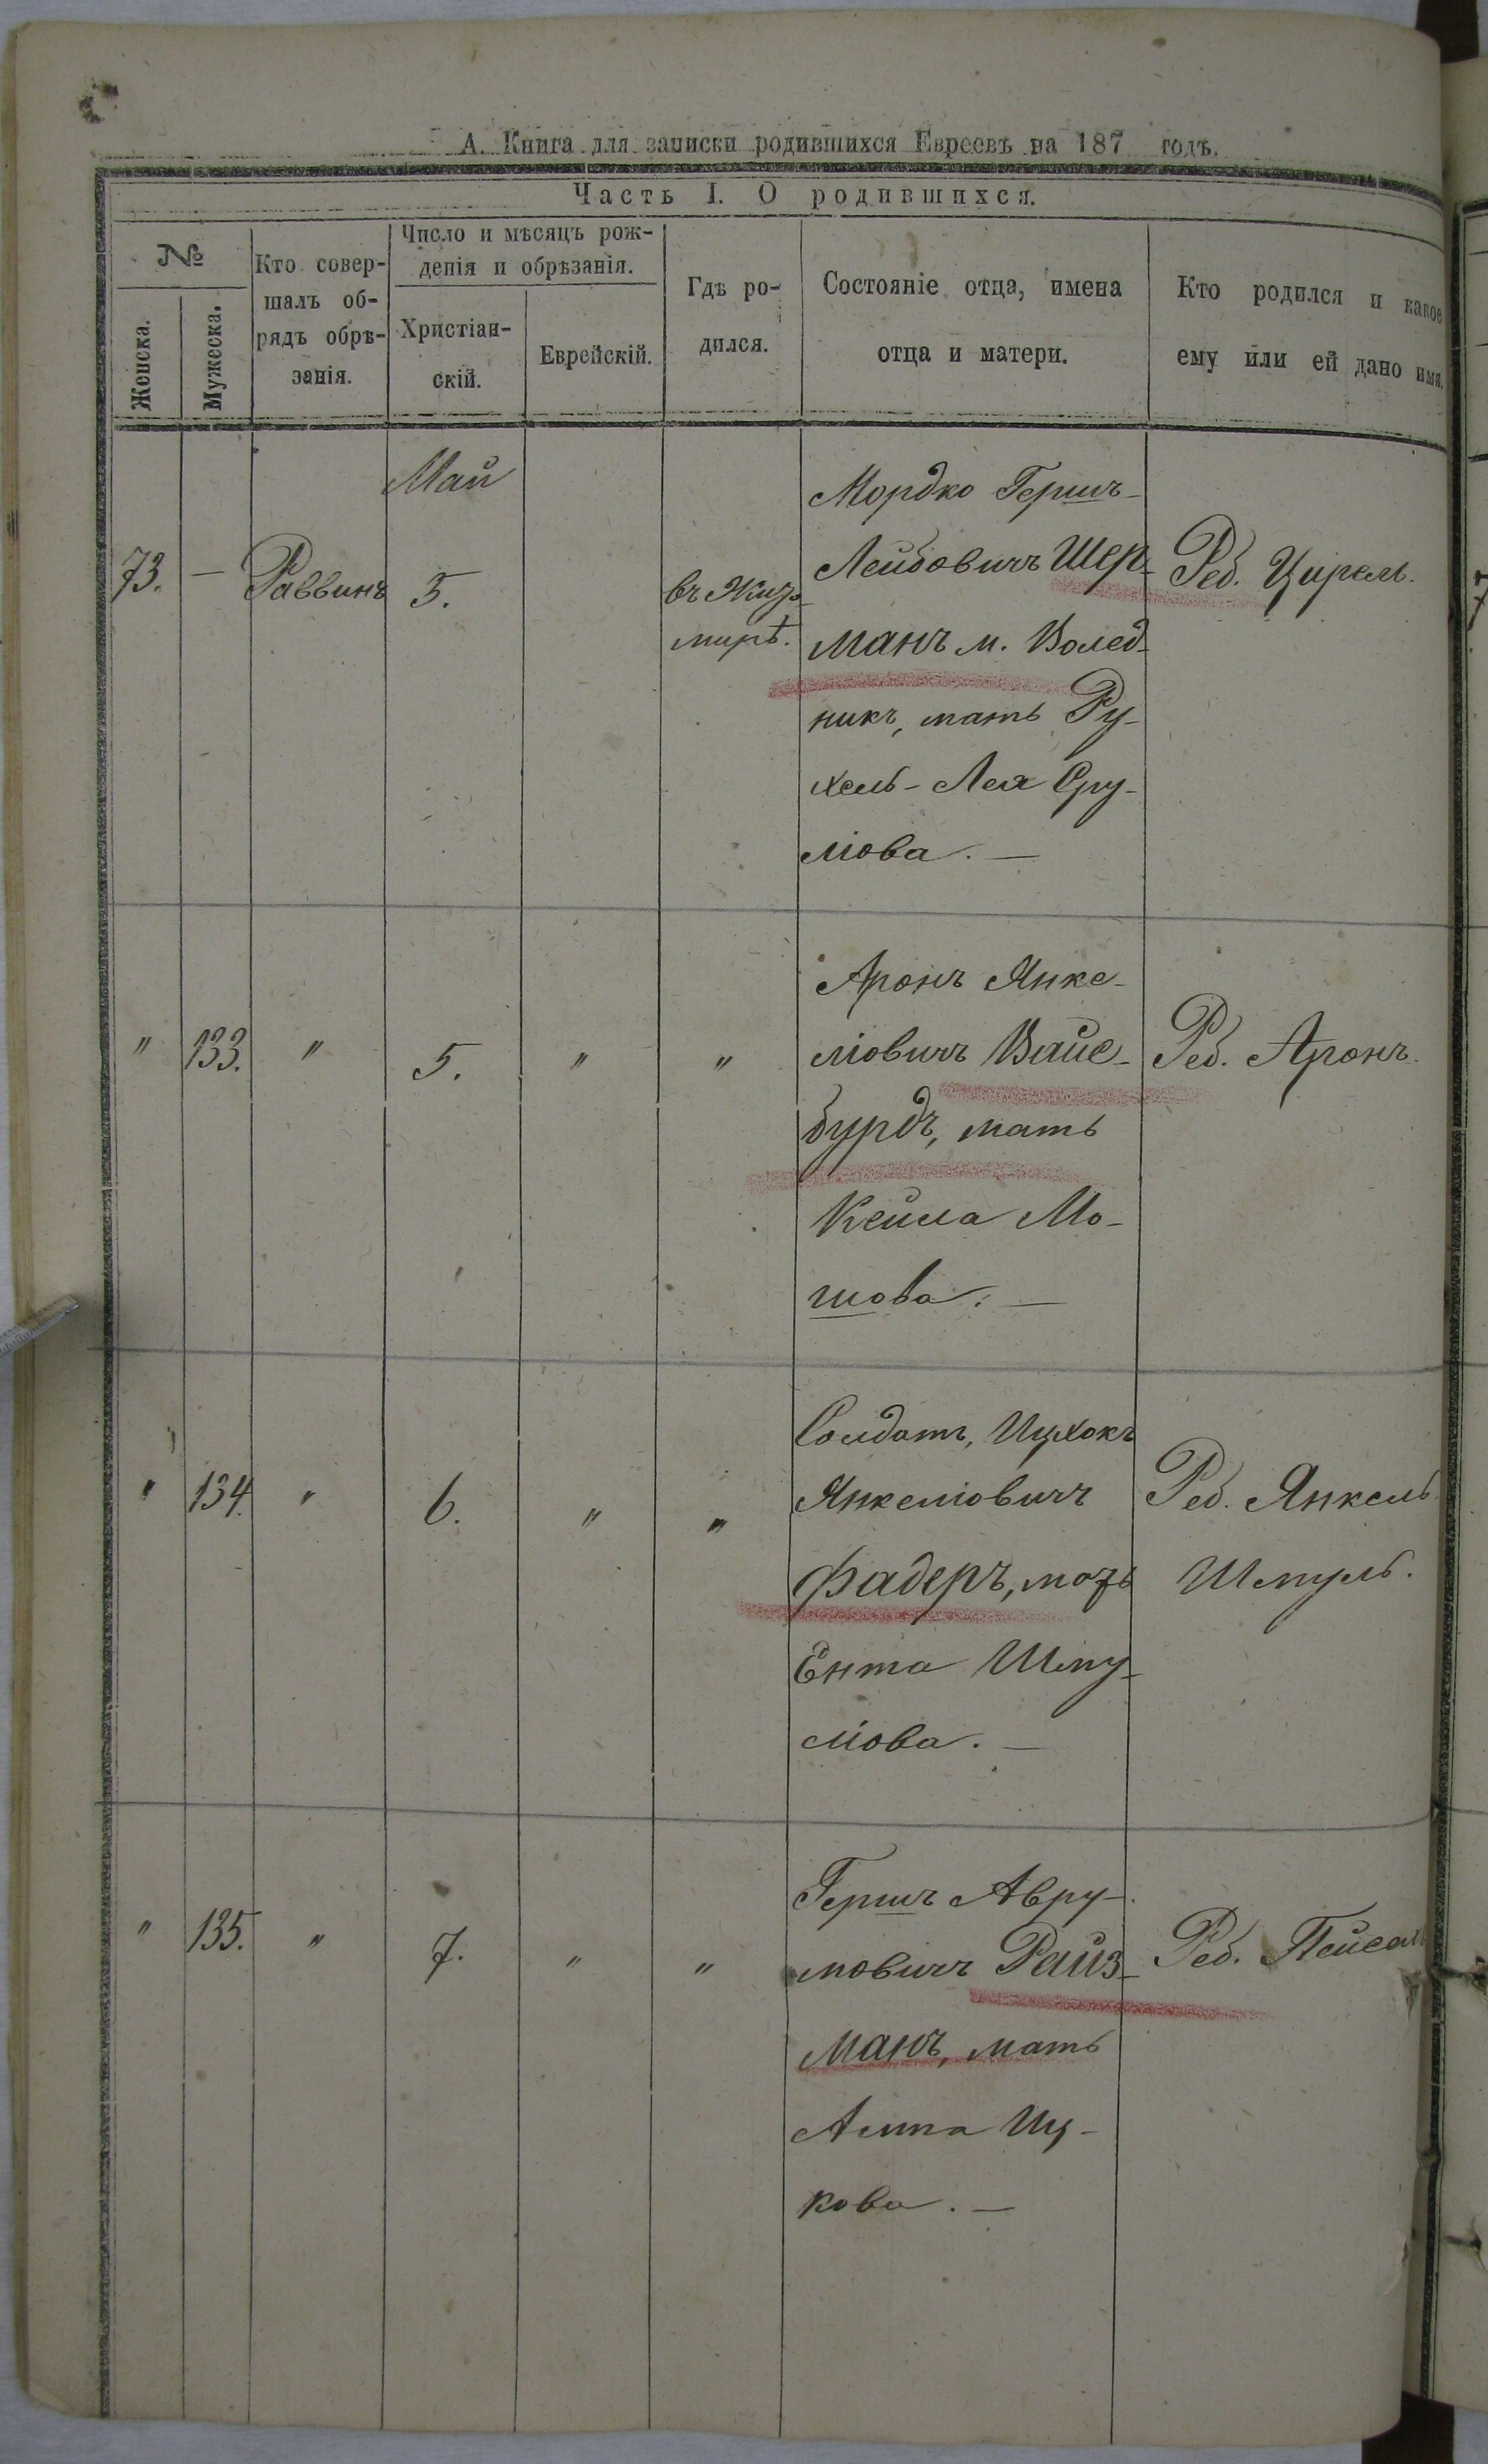 А. Книга для записки родившихся Евреевъ на 187 годъ.
Часть I. О родившихся.
№
Женска.
Мужеска.
Кто совер-
шалъ об-
рядъ обрѣ-
занія.
Число и мѣсяцъ рож-
денія и обрѣзанія.
Христіан-
скій.
Еврейскій.
Гдѣ ро-
дился.
Состояніе отца, имена
отца и матери.
Кто родился и какое
ему или ей дано имя.
Май
73. — Раввинъ 5.
въ Жито
мирѣ.
Мордко Гершъ-
Лейбовичъ Шер-
манъ м. Волед-
никъ, мать Ру-
хель-Лея Сру-
ліова. —
Реб. Цирель.
" 133. " 5. " "
Аронъ Янке-
ліовичъ Вайс-
бурдъ, мать
Кейла Мо-
шова. —
Реб. Аронъ.
" 134. " 6. " "
Солдатъ, Ицхокъ
Янкеліовичъ
Фадеръ, мать
Ента Шму-
ліова. —
Реб. Янкель
Шмуль.
" 135. " 7. " "
Гершъ Авру-
мовичъ Райз-
манъ, мать
Иц-
кова. —
Реб. Пейсахъ